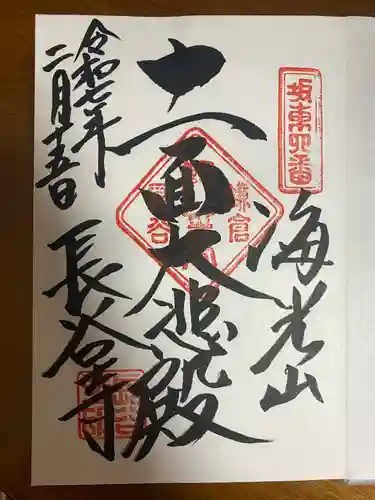 坂東四番
海光山
十一面大悲殿
長谷寺
令和七年
二月十五日